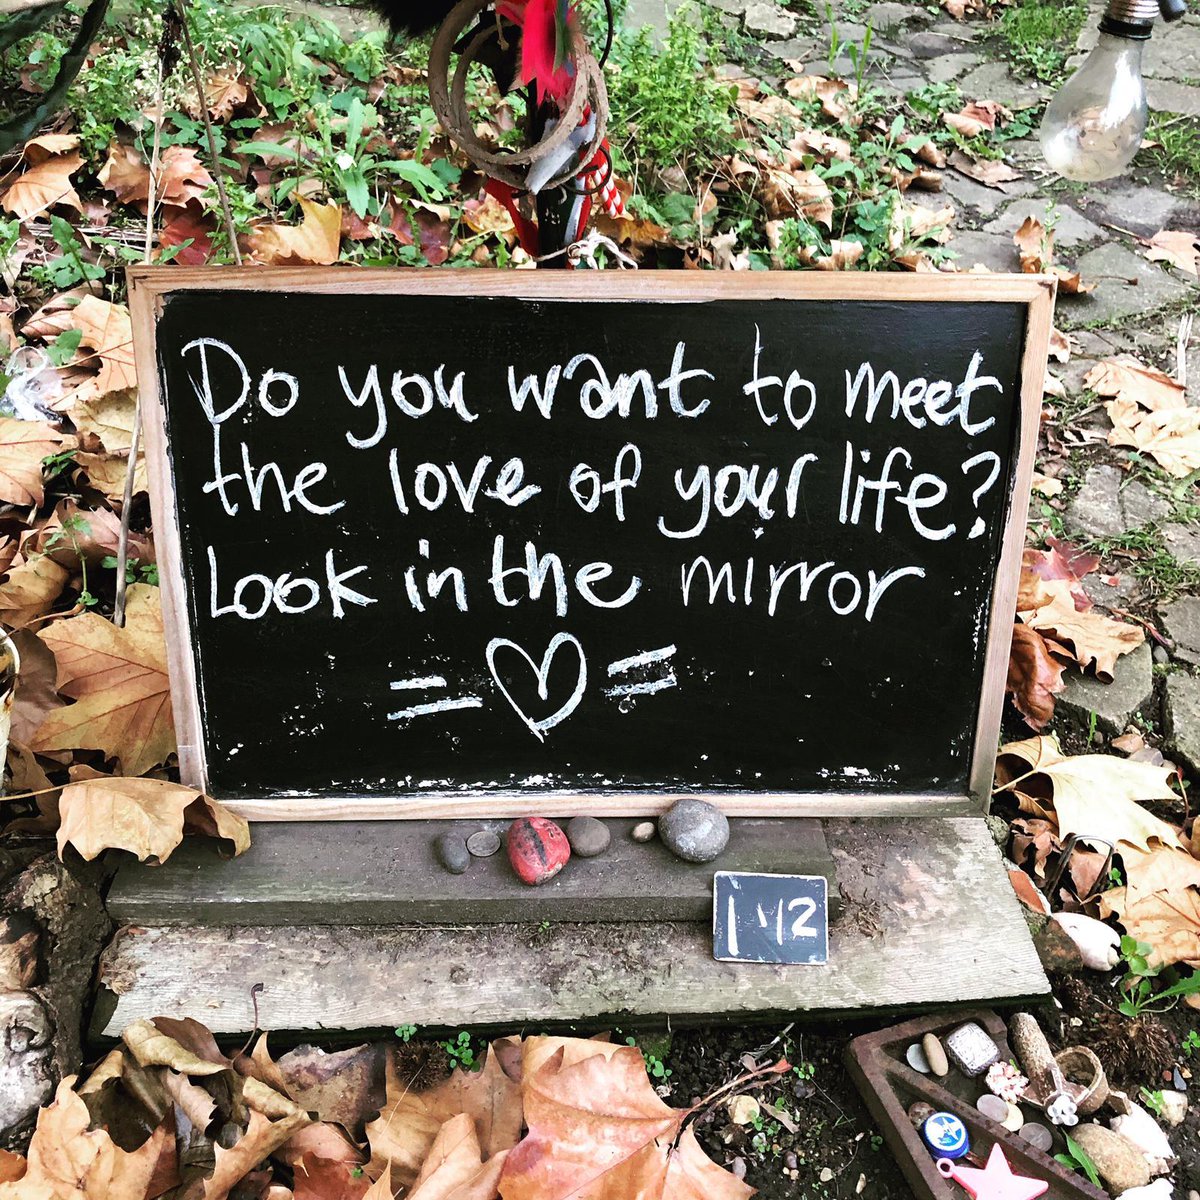 Do you want to meet
the love of your life?
Look in the mirror
= ♡ =
1 1/2